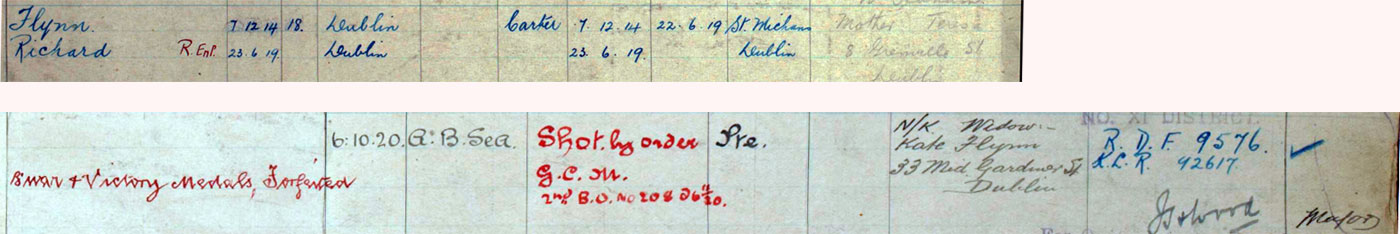 Flynn. 7 12 14 18. Dublin Carter 7. 12. 14 22. 6. 19 St. Michans Mother
Richard R.Enl. 23. 6 19. Dublin 23. 6. 19. Dublin 8 Grenville St.
Dublin
NO. XI DISTRICT.
6.10.20. A. B. Sea. Shot. by order Pte. N/K Widow:-
Kate Flynn R. D. F. 9576.
G. C. M. 33 Mid. Gardiner St. K. L. R. 42617.
B'war & Victory Medals, Forfeited Dublin
2nd B.O. No 208
Major